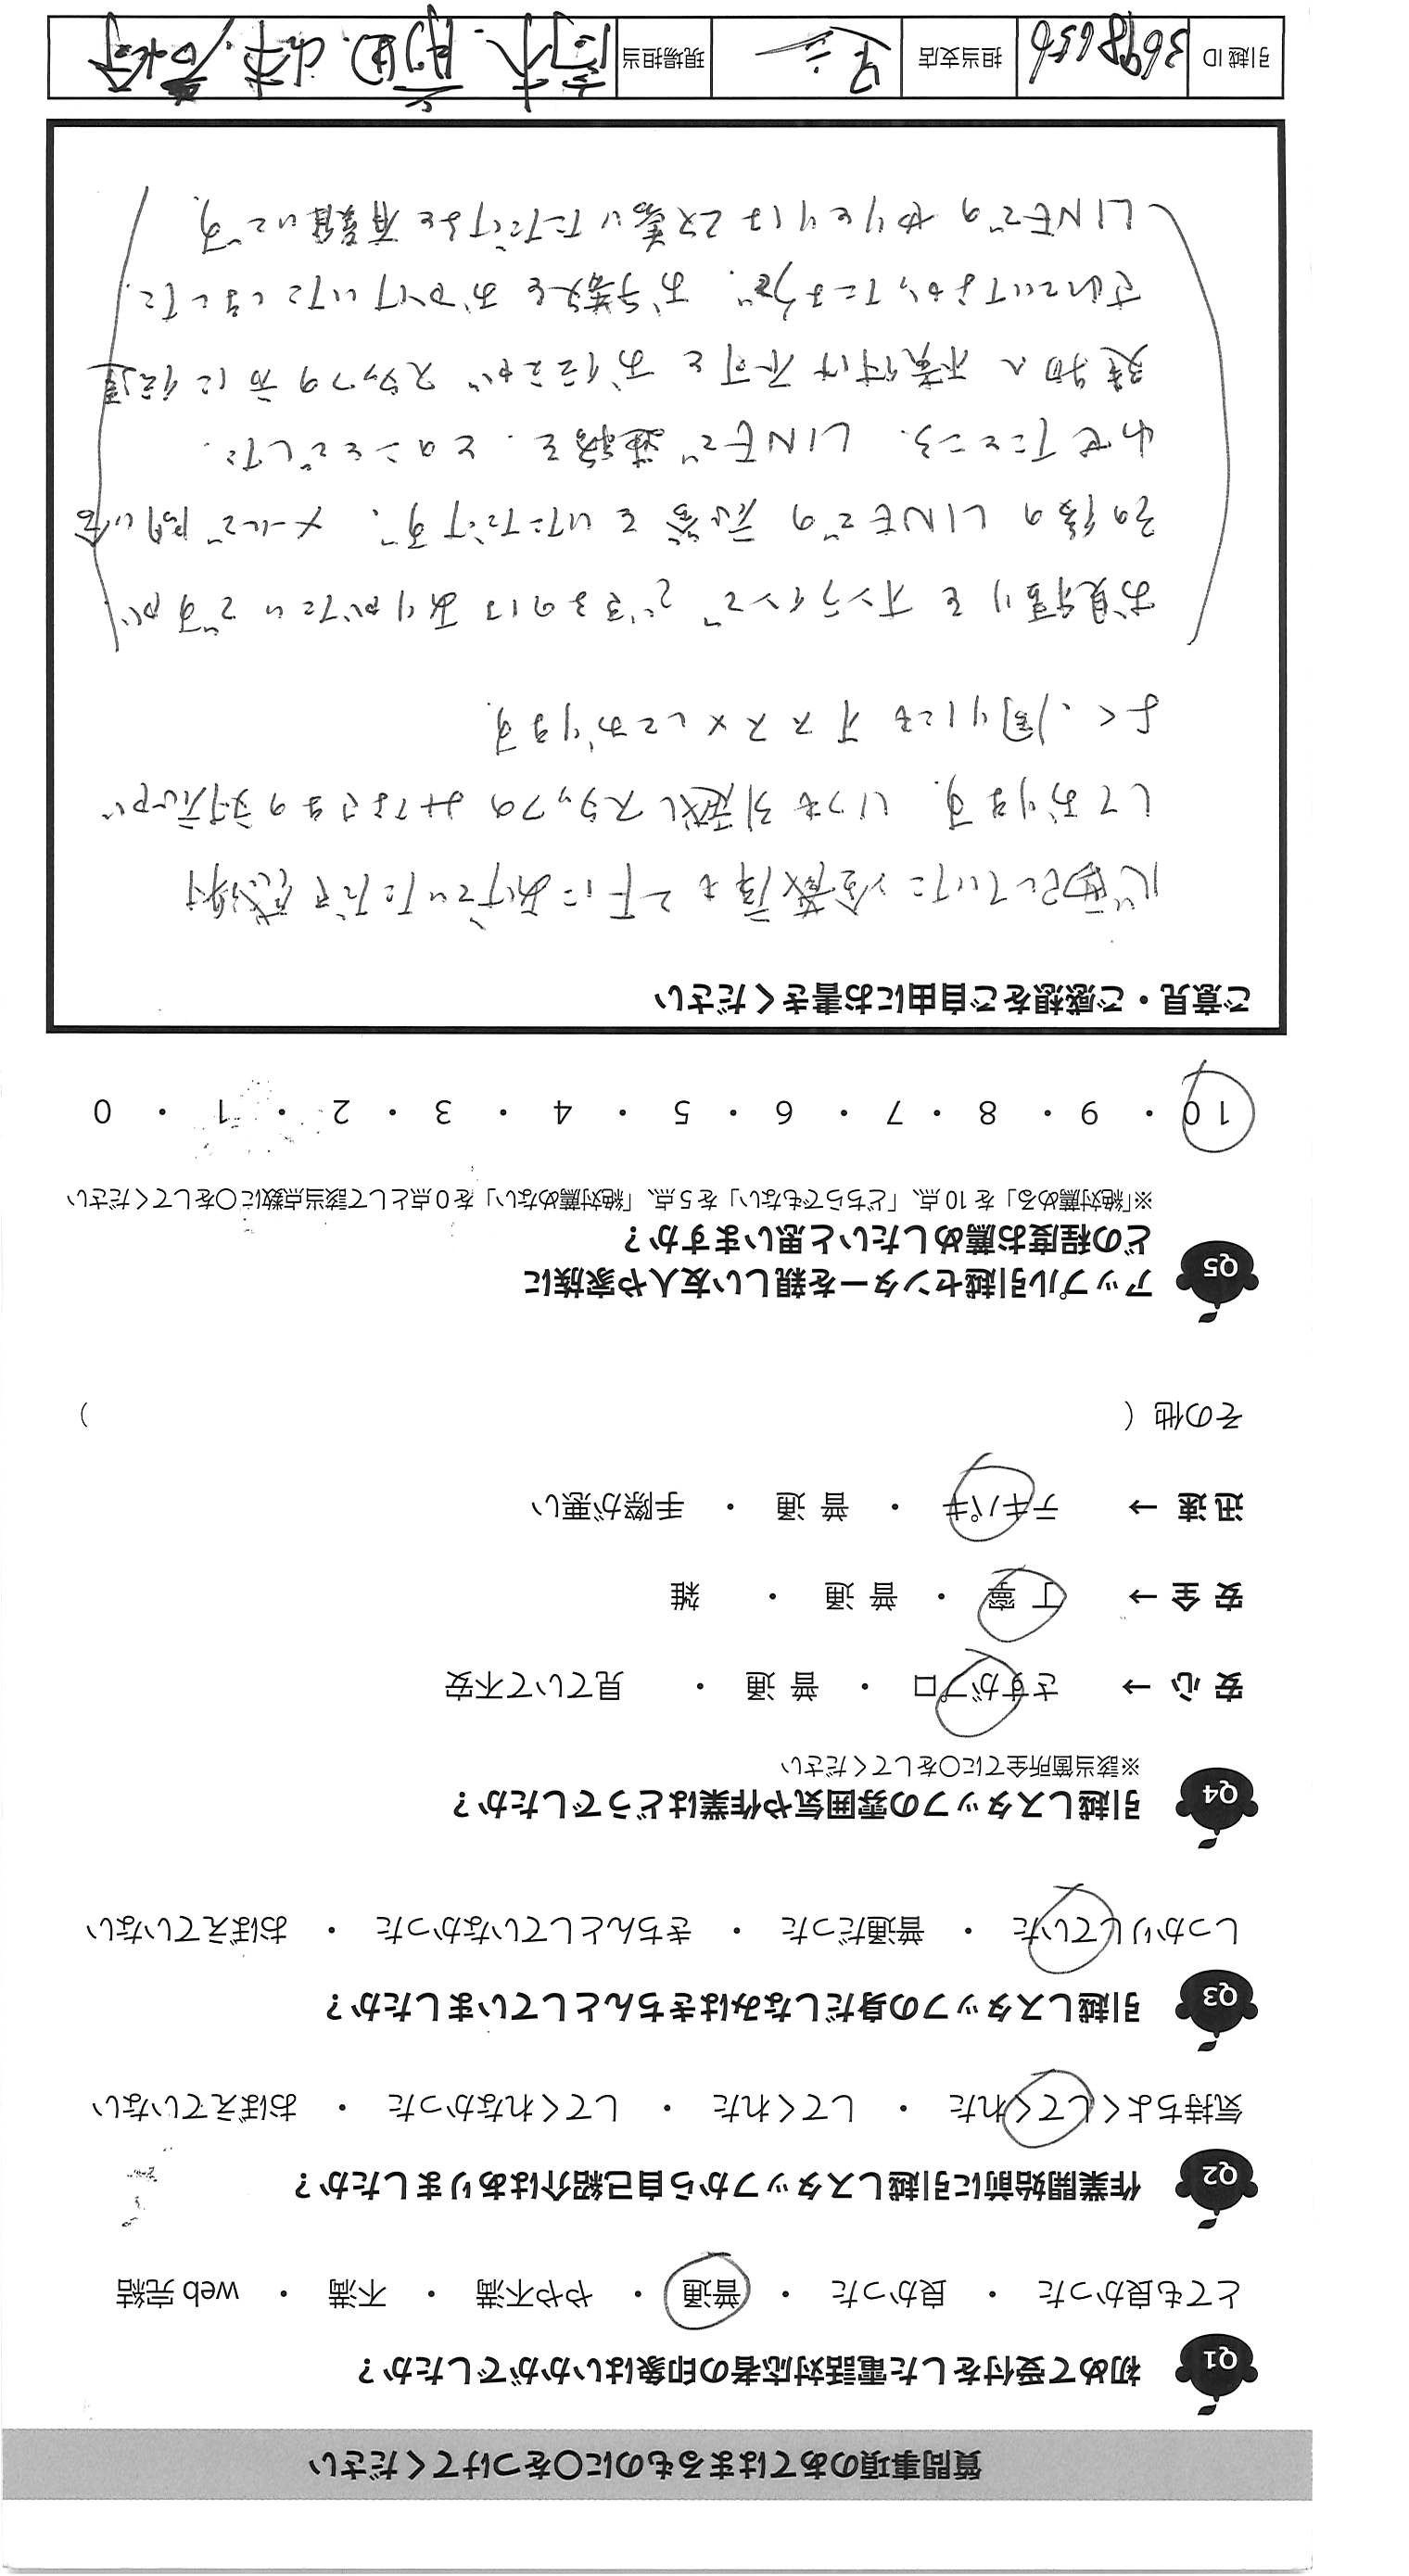 質問事項のあてはまるものに〇をつけてください
Q1 初めて受付をした電話対応者の印象はいかがでしたか？
とても良かった ・ 良かった ・ 普通 ・ やや不満 ・ 不満 ・ web 完結
Q2 作業開始前に引越しスタッフから自己紹介はありましたか？
気持ちよくしてくれた ・ してくれた ・ してくれなかった ・ おぼえていない
Q3 引越しスタッフの身だしなみはきちんとしていましたか？
しっかりしていた ・ 普通だった ・ きちんとしていなかった ・ おぼえていない
Q4 引越しスタッフの雰囲気や作業はどうでしたか？
※該当箇所全てに〇をしてください
安心 → さすがプロ ・ 普通 ・ 見ていて不安
安全 → 丁寧 ・ 普通 ・ 雑
迅速 → テキパキ ・ 普通 ・ 手際が悪い
その他（ ）
Q5 アップル引越センターを親しい友人や家族に
どの程度お薦めしたいと思いますか？
※「絶対薦める」を 10 点、「どちらでもない」を 5 点、「絶対薦めない」を 0 点として該当点数に〇をしてください
10 ・ 9 ・ 8 ・ 7 ・ 6 ・ 5 ・ 4 ・ 3 ・ 2 ・ 1 ・ 0
ご意見・ご感想をご自由にお書きください
心配していた冷蔵庫も上下にあげていただき感謝
しております。いつも引越しスタッフのみなさまの対応が
よく、周りにもオススメしております。
お見積りをオンラインでできるのはありがたいですが、
その後のLINEでの応答をいただけず、メールで問い合
わせたところ、LINEで連絡を、とのことでした。
建物へ横付け不可とお伝えがスタッフの方に伝達
されていなかったようで、お手数をおかけいたしました。
LINEでのやりとりは改善いただけると有難いです。
引越 ID 3698656 担当支店 現場担当